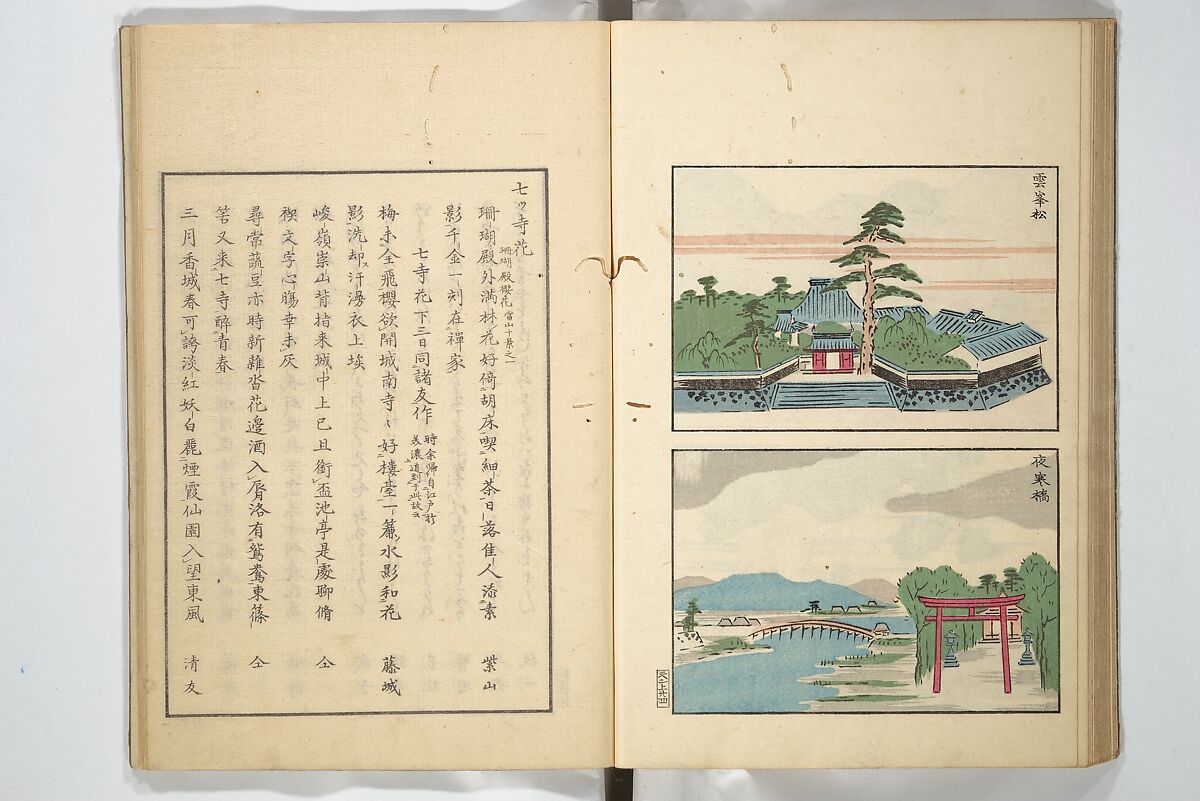 雲峯松
夜寒橋
七ッ寺花
珊瑚殿櫻花當山十景之一
珊瑚殿外満林花好倚胡床喫細茶日落佳人添素 紫山
影千金一刻在禪家
七寺花下三日同諸友作
時余歸自江戸
梅未全飛櫻欲開城南寺〻好樓臺一簾水影和花 藤城
影洗却ス汗湯衣上埃
峻嶺崇山背指来城中上巳且銜盃池亭是處聊脩 仝
禊文字心腸幸未灰
尋常蔬豆亦時新雜沓花邉酒入脣洛有鴛鴦東篠 仝
筈又来七寺醉青春
三月香城春可誇淡紅妖白麗煙霞仙園入望東風 清友